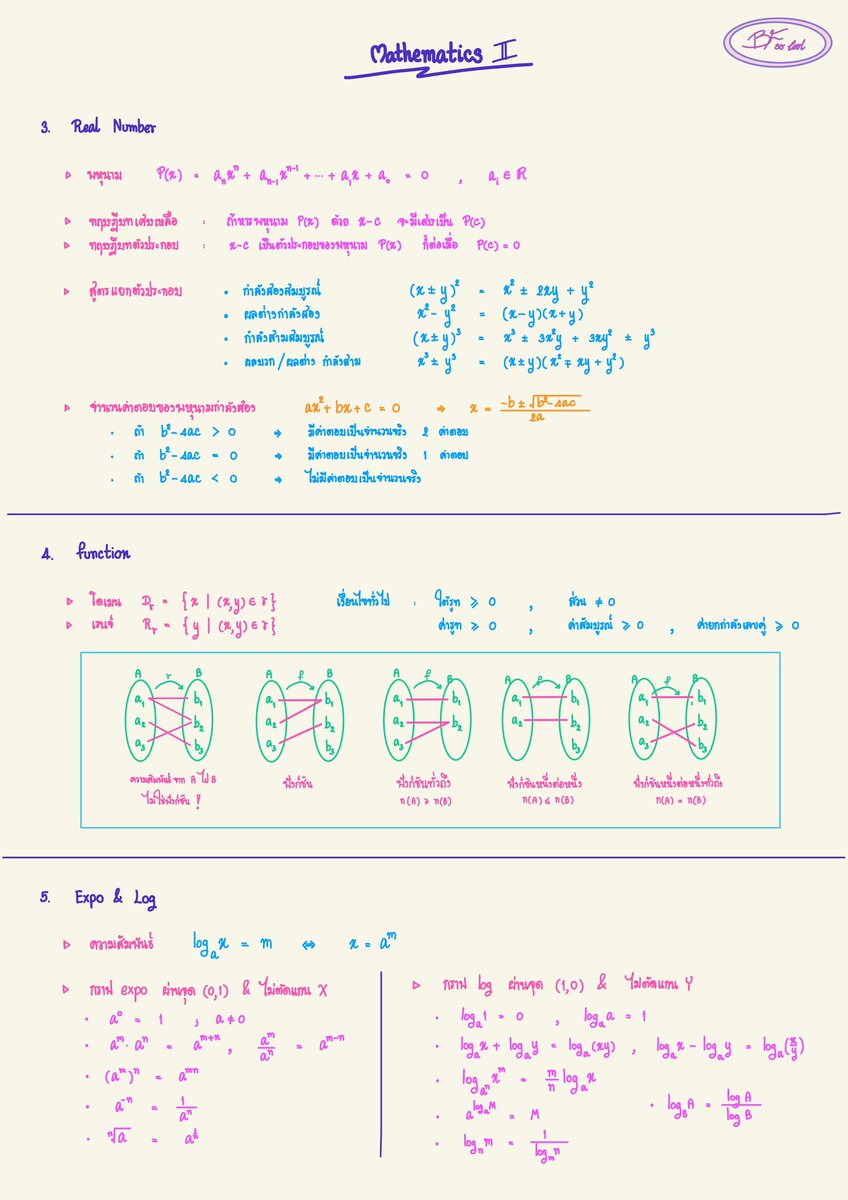 Mathematics II
BF so cool
3. Real Number
▷ พหุนาม P(x) = aₙxⁿ + aₙ₋₁xⁿ⁻¹ + ... + a₁x + a₀ = 0 , aᵢ ∈ ℝ
▷ ทฤษฎีบทเศษเหลือ : ถ้าหารพหุนาม P(x) ด้วย x-c จะมีเศษเป็น P(c)
▷ ทฤษฎีบทตัวประกอบ : x-c เป็นตัวประกอบของพหุนาม P(x) ก็ต่อเมื่อ P(c) = 0
▷ สูตรแยกตัวประกอบ • กำลังสองสมบูรณ์ (x ± y)² = x² ± 2xy + y²
• ผลต่างกำลังสอง x² - y² = (x-y)(x+y)
• กำลังสามสมบูรณ์ (x ± y)³ = x³ ± 3x²y + 3xy² ± y³
• ผลบวก / ผลต่าง กำลังสาม x³ ± y³ = (x ± y)(x² ∓ xy + y²)
▷ จำนวนคำตอบของพหุนามกำลังสอง ax² + bx + c = 0 ⇒ x = (-b ± √(b²-4ac))/2a
• ถ้า b² - 4ac > 0 ⇒ มีคำตอบเป็นจำนวนจริง 2 คำตอบ
• ถ้า b² - 4ac = 0 ⇒ มีคำตอบเป็นจำนวนจริง 1 คำตอบ
• ถ้า b² - 4ac < 0 ⇒ ไม่มีคำตอบเป็นจำนวนจริง
4. Function
▷ โดเมน Dᵣ = {x | (x,y) ∈ r} เงื่อนไขทั่วไป : ใต้รูท ≥ 0 , ส่วน ≠ 0
▷ เรนจ์ Rᵣ = {y | (x,y) ∈ r} ค่ารูท ≥ 0 , ค่าสัมบูรณ์ ≥ 0 , ค่ายกกำลังเลขคู่ ≥ 0
A r B A f B A f B A f B A f B
a₁ b₁ a₁ b₁ a₁ b₁ a₁ b₁ a₁ b₁
a₂ b₂ a₂ b₂ a₂ b₂ a₂ b₂ a₂ b₂
a₃ b₃ a₃ b₃ a₃ b₃ a₃ b₃
ความสัมพันธ์ จาก A ไป B ฟังก์ชัน ฟังก์ชันทั่วถึง ฟังก์ชันหนึ่งต่อหนึ่ง ฟังก์ชันหนึ่งต่อหนึ่งทั่วถึง
ไม่ใช่ฟังก์ชัน ! n(A) ≥ n(B) n(A) ≤ n(B) n(A) = n(B)
5. Expo & Log
▷ ความสัมพันธ์ logₐx = m ⇔ x = aᵐ
▷ กราฟ expo ผ่านจุด (0,1) & ไม่ตัดแกน X
• a⁰ = 1 ; a ≠ 0
• aᵐ · aⁿ = aᵐ⁺ⁿ , aᵐ/aⁿ = aᵐ⁻ⁿ
• (aᵐ)ⁿ = aᵐⁿ
• a⁻ⁿ = 1/aⁿ
• ⁿ√a = a^(1/n)
▷ กราฟ log ผ่านจุด (1,0) & ไม่ตัดแกน Y
• logₐ1 = 0 , logₐa = 1
• logₐx + logₐy = logₐ(xy) , logₐx - logₐy = logₐ(x/y)
• log_(aⁿ) xᵐ = m/n logₐx
• a^(logₐM) = M
• log_B A = log A / log B
• logₙm = 1/logₘn